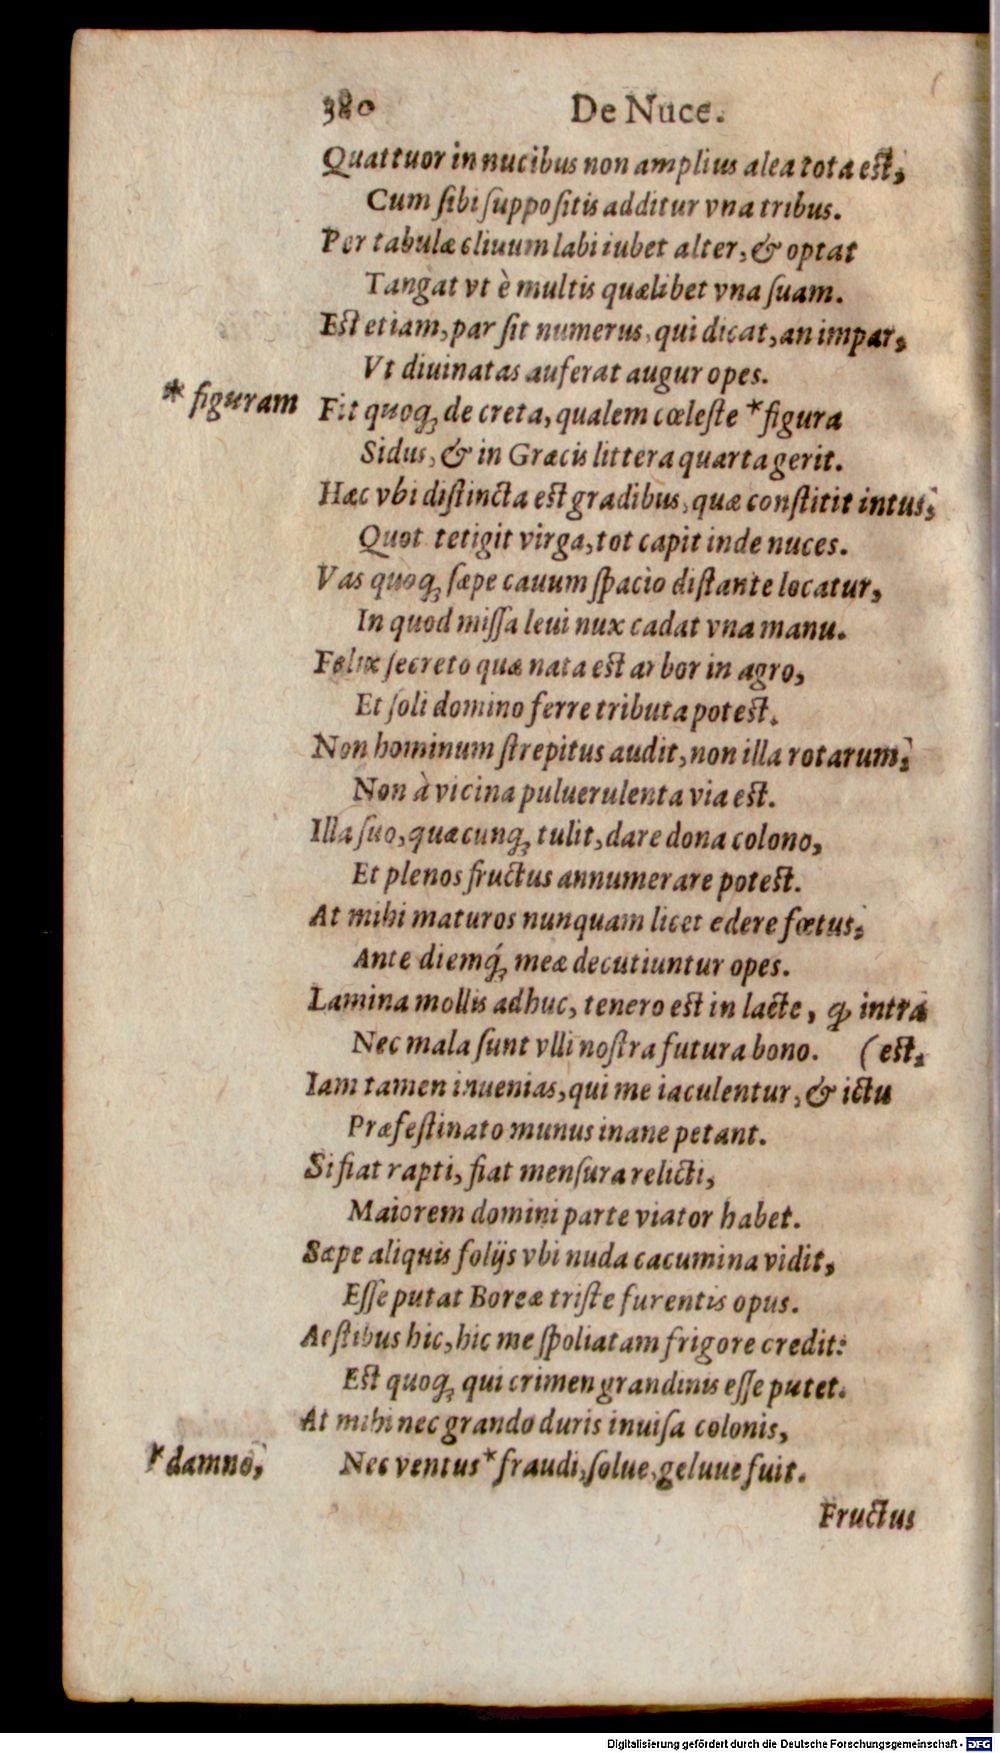 380 De Nuce.
Quattuor in nucibus non amplius alea tota est,
Cum sibi suppositis additur vna tribus.
Per tabulæ cliuum labi iubet alter, & optat
Tangat vt è multis quælibet vna suam.
Est etiam, par sit numerus, qui dicat, an impar,
Vt diuinatas auferat augur opes.
* figuram
Fit quoq; de creta, qualem cœleste * figura
Sidus, & in Græcis littera quarta gerit.
Hæc vbi distincta est gradibus, quæ constitit intus,
Quot tetigit virga, tot capit inde nuces.
Vas quoq; sæpe cauum spacio distante locatur,
In quod missa leui nux cadat vna manu.
Felix secreto quæ nata est arbor in agro,
Et soli domino ferre tributa potest.
Non hominum strepitus audit, non illa rotarum,
Non à vicina puluerulenta via est.
Illa suo, quæcunq; tulit, dare dona colono,
Et plenos fructus annumerare potest.
At mihi maturos nunquam licet edere fœtus,
Ante diemq́; meæ decutiuntur opes.
Lamina mollis adhuc, tenero est in lacte, ꝙ intra
Nec mala sunt vlli nostra futura bono. (est.
Iam tamen inuenias, qui me iaculentur, & ictu
Præfestinato munus inane petant.
Si fiat rapti, fiat mensura relicti,
Maiorem domini parte viator habet.
Sæpe aliquis folijs vbi nuda cacumina vidit,
Esse putat Boreæ triste furentis opus.
Aestibus hic, hic me spoliatam frigore credit:
Est quoq; qui crimen grandinis esse putet.
At mihi nec grando duris inuisa colonis,
* damno,
Nec ventus * fraudi, solue, geluue fuit.
Fructus
Digitalisierung gefördert durch die Deutsche Forschungsgemeinschaft - DFG